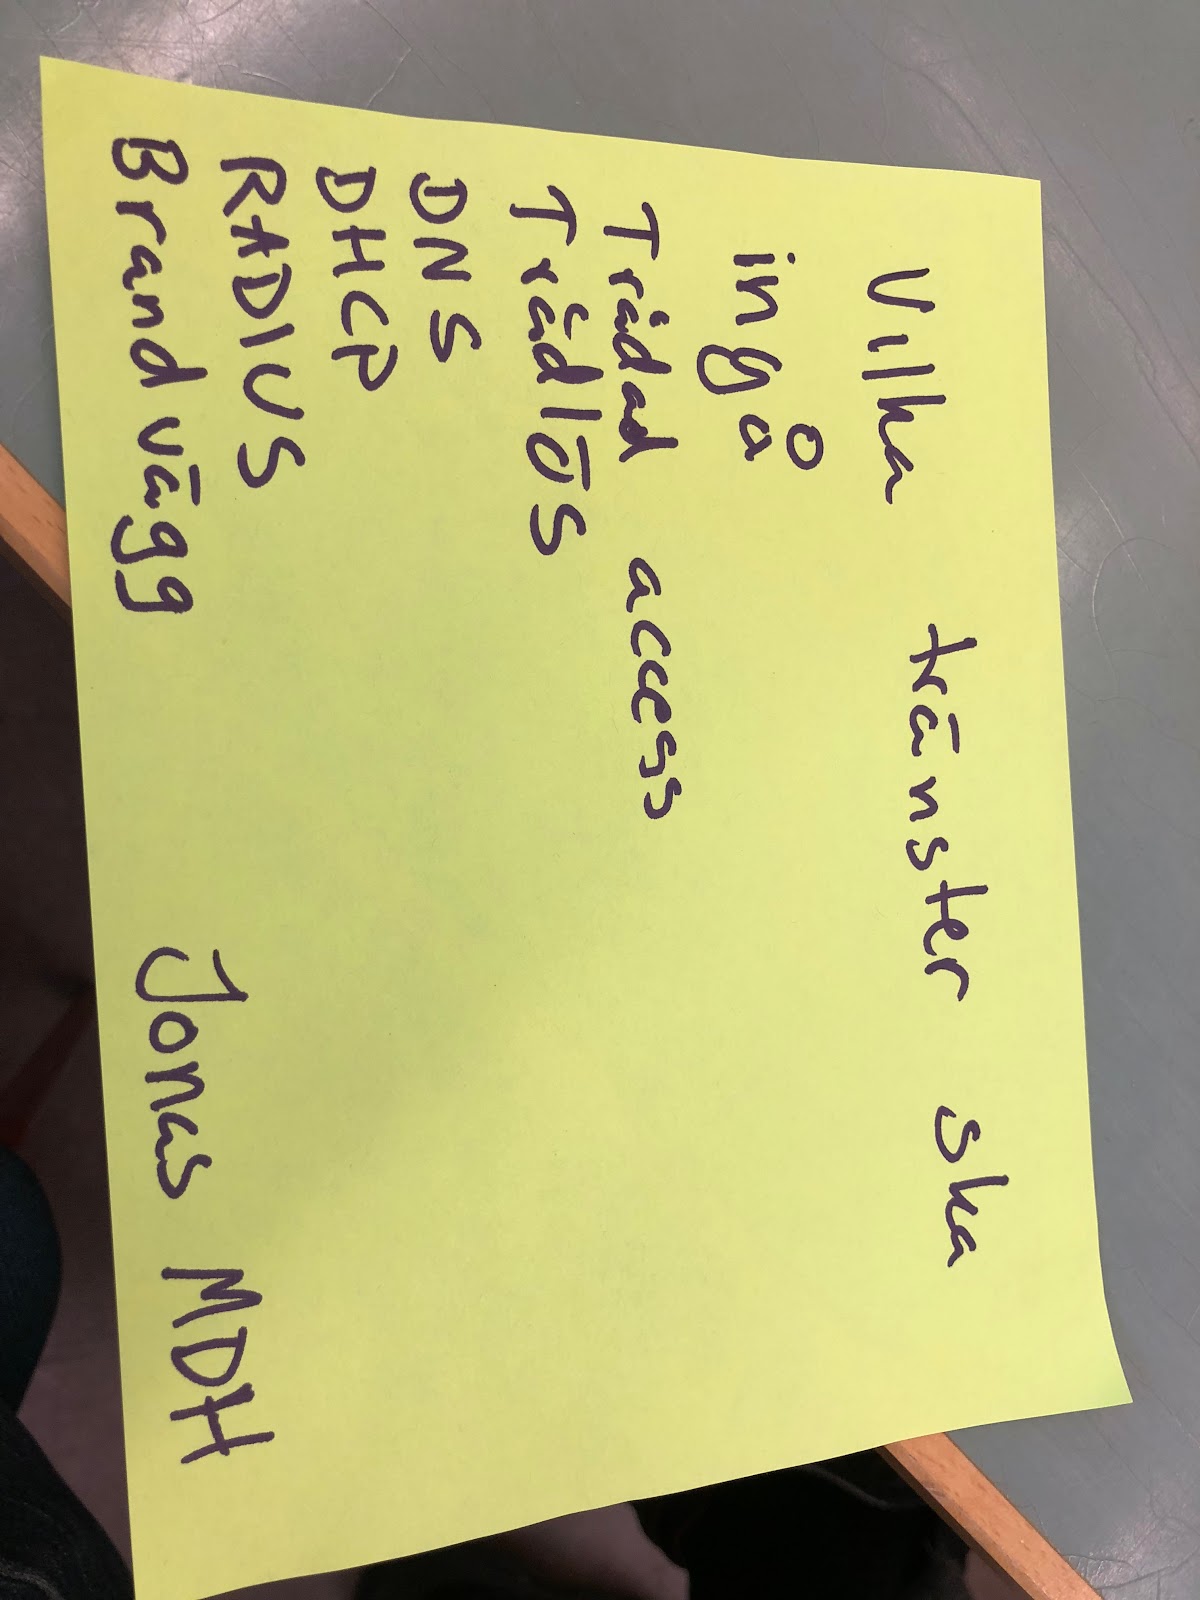 Vilka tränster ska
ingå
Trådad access
Trådlös
DNS
DHCP
RADIUS
Brandvägg Jonas MDH